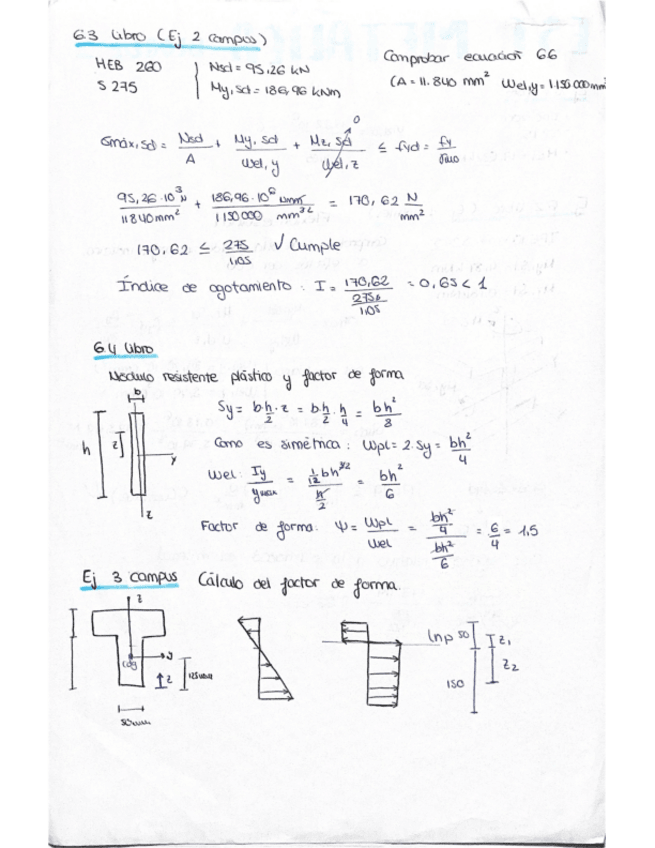 6.3 Libro (Ej 2 campus)
HEB 260 | Nsd = 95,26 kN
S 275 | My,sd = 186,96 kNm
Comprobar ecuación 6.6
(A = 11.840 mm² Wel,y = 1.150.000 mm³
σmáx,sd = Nsd/A + My,sd/Wel,y + Mz,sd/Wel,z ≤ fyd = fy/γM0
0
95,26·10³ N/11840 mm² + 186,96·10⁶ Nmm/1150000 mm³ = 170,62 N/mm²
170,62 ≤ 275/1,05 √ Cumple
Índice de agotamiento: I = 170,62/(275/1,05) = 0,65 < 1
6.4 Libro
Módulo resistente plástico y factor de forma
b
h
z
y
z
Sy = b·h/2·z = b·h/2·h/4 = bh²/8
Como es simétrica: Wpl = 2·Sy = bh²/4
Wel: Iy/ymax = (1/12 bh³)/(h/2) = bh²/6
Factor de forma: Ψ = Wpl/Wel = (bh²/4)/(bh²/6) = 6/4 = 1,5
Ej 3 campus Cálculo del factor de forma.
z
cdg
y
z
125mm
50mm
lnp 50
150
z₁
z₂